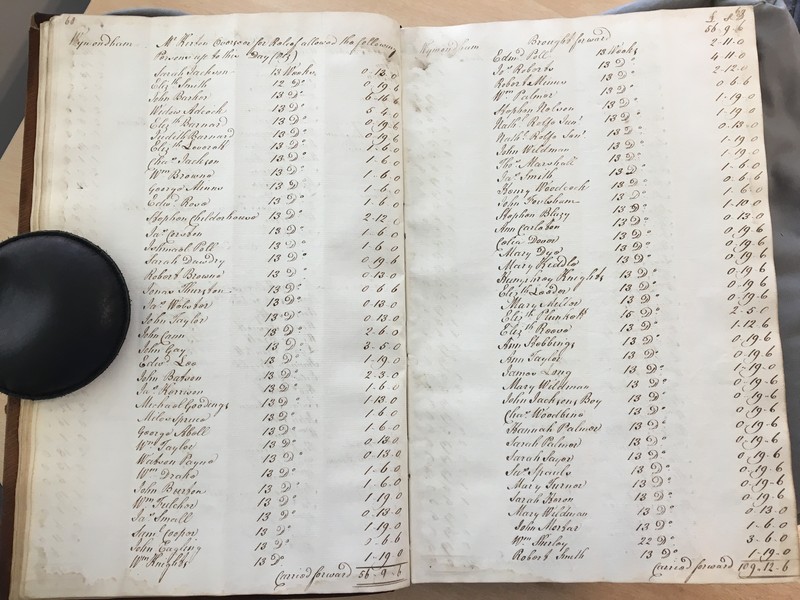 60
Wymondham Mr Kerton Overseer for Relief allowed the following
Persons up to this Day
Sarah Jackson 13 Weeks 0-13-0
Elizth Smith 12 Do 0-19-6
John Barker 13 Do 6-16-6
Widow Adcock 13 Do 5-4-0
Elizth Barnard 13 Do 0-19-6
Judith Barnard 13 Do 0-19-6
Elizth 13 Do
Chas Jackson 13 Do 1-6-0
Wm Browne 13 Do 1-6-0
George Minns 13 Do 1-6-0
Edwd Rose 13 Do 1-6-0
Stephen Childerhouse 13 Do 2-12-0
Jas 13 Do 1-6-0
Poll 13 Do 1-6-0
Sarah Dawdry 13 Do 0-19-6
Robert Browne 13 Do 0-13-0
Jonas Thurston 13 Do 0-6-6
Jas Webster 13 Do 0-13-0
John Taylor 13 Do 0-13-0
John Cann 13 Do 2-6-0
John Gay 13 Do 3-5-0
Edwd Loo 13 Do 1-19-0
John Batson 13 Do 2-3-0
Jas Harrison 13 Do 1-6-0
Michael Goodings 13 Do 1-13-0
Miles Spruce 13 Do 1-6-0
George Abell 13 Do 1-6-0
Wm Taylor 13 Do 0-13-0
Watson Payne 13 Do 0-13-0
Wm Drake 13 Do 1-6-0
John Burton 13 Do 1-6-0
Wm Fulcher 13 Do 1-19-0
Jas Small 13 Do 0-13-0
Cooper 13 Do 1-19-0
John Eagling 13 Do 2-6-6
Wm Knights 13 Do 1-19-0
Carried forward 56-9-6
Wymondham Brought forward 56-9-6
Edmd Poll 13 Weeks 2-11-0
Jos Roberts 13 Do 4-11-0
Robert Minns 13 Do 2-12-0
Wm Palmer 13 Do 0-6-6
Stephen Nelson 13 Do 1-19-0
Nathl Rolfe Senr 13 Do 1-19-0
Nathl Rolfe Junr 13 Do 0-13-0
John Wildman 13 Do 1-19-0
Thos Marshall 13 Do 1-19-0
Jas Smith 13 Do 1-6-0
Henry Woodcock 13 Do 0-6-6
John Foulsham 13 Do 1-6-0
Stephen Blazy 13 Do 1-10-0
Ann Carleton 13 Do 0-13-0
13 Do 0-19-6
Mary Dye 13 Do 0-19-6
Mary Kiddle 13 Do 0-19-6
Humphrey Knights 13 Do 0-19-6
Elizth Loader 13 Do 0-19-6
Mary 13 Do 0-19-6
Elizth Plunkett 15 Do 2-5-0
Elizth Reeve 13 Do 1-12-6
Ann Stebbings 13 Do 0-19-6
Ann Taylor 13 Do 0-19-6
James Long 13 Do 1-19-0
Mary Wildman 13 Do 0-19-6
John Jacksons Boy 13 Do 0-19-6
Chas Woodbine 13 Do 0-19-6
Hannah Palmer 13 Do 0-19-6
Sarah Palmer 13 Do 0-19-6
Sarah Sayer 13 Do 0-19-6
Jas Sparks 13 Do 0-19-6
Mary Turner 13 Do 0-19-6
Sarah Heron 13 Do 0-19-6
Mary Wildman 13 Do 0-13-0
John Morter 13 Do 1-6-0
Wm Shirley 22 Do 3-6-0
Robert Smith 13 Do 1-19-0
Carried forward 109-12-6